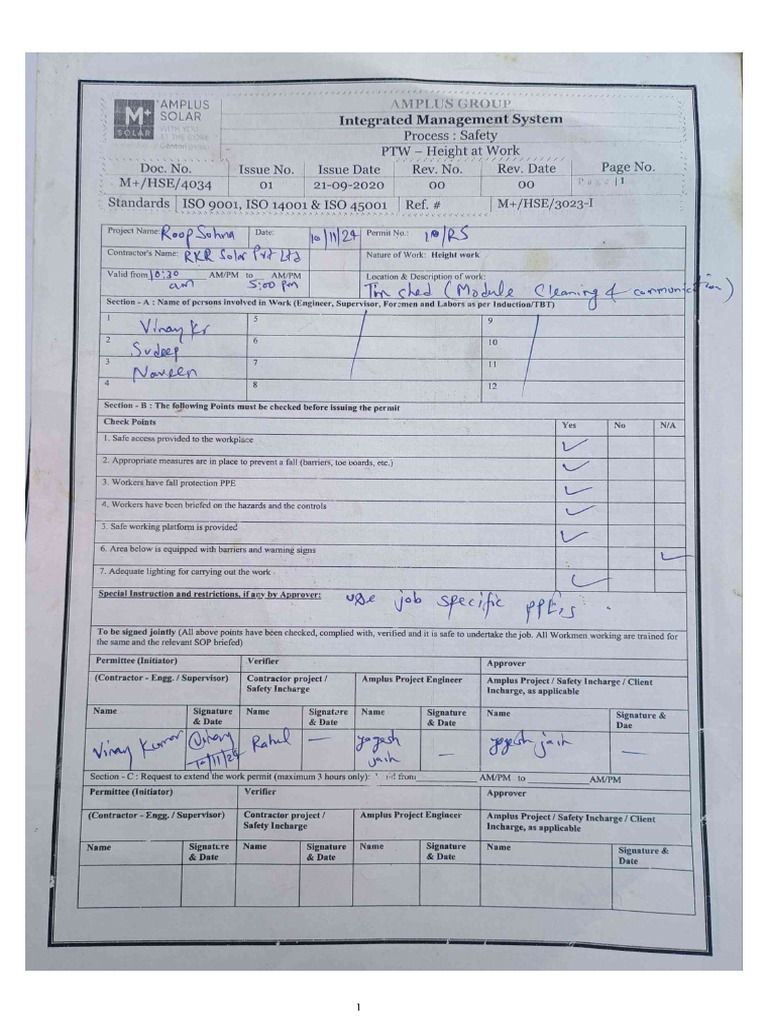 AMPLUS GROUP
M+ SOLAR
AMPLUS SOLAR
Integrated Management System
Process : Safety
PTW – Height at Work
Doc. No. Issue No. Issue Date Rev. No. Rev. Date Page No.
M+/HSE/4034 01 21-09-2020 00 00 | 1
Standards ISO 9001, ISO 14001 & ISO 45001 Ref. # M+/HSE/3023-I
Project Name: Roop Sohna Date: 10/11/24 Permit No.: 10/RS
Contractor's Name: RKR Solar Pvt Ltd Nature of Work: Height work
Valid from 10:30 am AM/PM to 5:00 pm AM/PM Location & Description of work:
Tin shed (Module Cleaning & communication)
Section - A : Name of persons involved in Work (Engineer, Supervisor, Foremen and Labors as per Induction/TBT)
1 Vinay Kr 5 9
2 Sudeep 6 10
3 Naveen 7 11
4 8 12
Section - B : The following Points must be checked before issuing the permit
Check Points Yes No N/A
1. Safe access provided to the workplace ✓
2. Appropriate measures are in place to prevent a fall (barriers, toe boards, etc.) ✓
3. Workers have fall protection PPE ✓
4. Workers have been briefed on the hazards and the controls ✓
5. Safe working platform is provided ✓
6. Area below is equipped with barriers and warning signs ✓
7. Adequate lighting for carrying out the work ✓
Special Instruction and restrictions, if any by Approver: use job specific PPE,s .
To be signed jointly (All above points have been checked, complied with, verified and it is safe to undertake the job. All Workmen working are trained for
the same and the relevant SOP briefed)
Permittee (Initiator) Verifier Approver
(Contractor - Engg. / Supervisor) Contractor project / Safety Incharge Amplus Project Engineer Amplus Project / Safety Incharge / Client Incharge, as applicable
Name Signature & Date Name Signature & Date Name Signature & Date Name Signature & Dae
Vinay Kumar Vinay 10/11/24 Rahul — yogesh jain — yogesh jain —
Section - C : Request to extend the work permit (maximum 3 hours only): from AM/PM to AM/PM
Permittee (Initiator) Verifier Approver
(Contractor - Engg. / Supervisor) Contractor project / Safety Incharge Amplus Project Engineer Amplus Project / Safety Incharge / Client Incharge, as applicable
Name Signature & Date Name Signature & Date Name Signature & Date Name Signature & Date
1